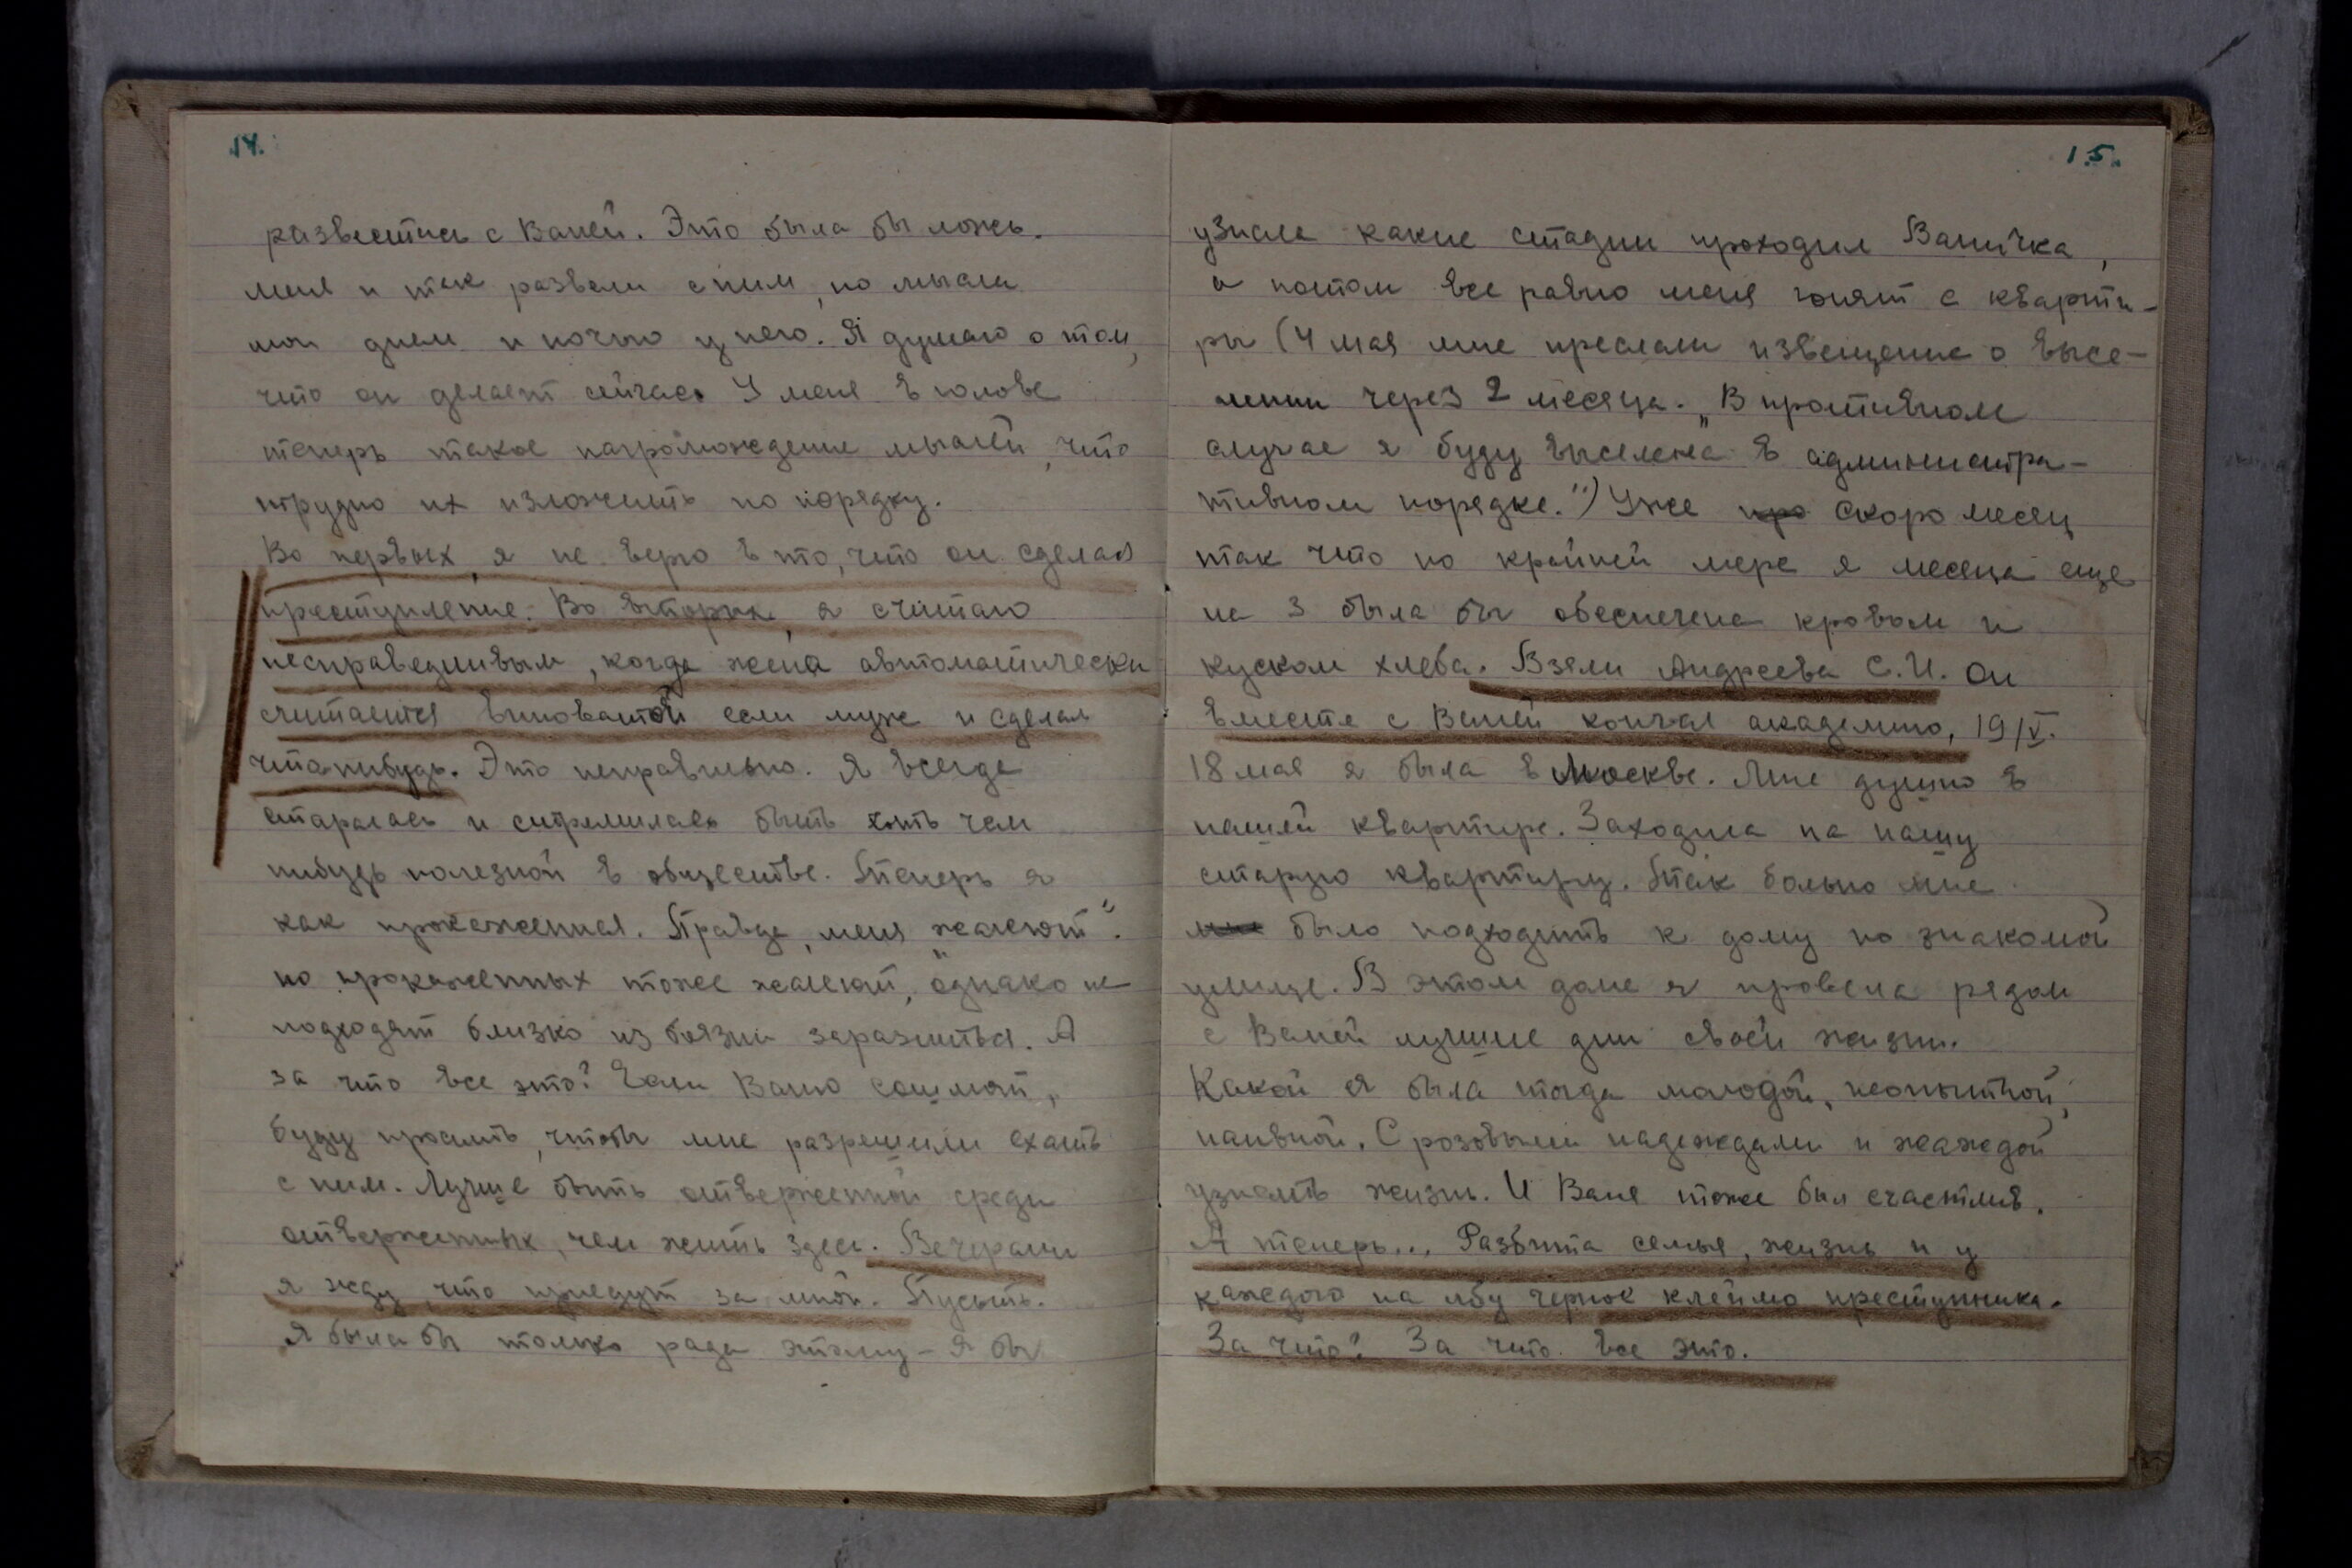 14.
развестись с Ваней. Это была бы ложь.
меня и так развели с ним, но мысли
мои днем и ночью у него. Я думаю о том,
что он делает сейчас. У меня в голове
теперь такое нагромождение мыслей, что
трудно их изложить по порядку.
Во первых, я не верю в то, что он сделал
преступление. Во вторых, я считаю
несправедливым, когда жена автоматически
считается виноватой если муж и сделал
что-нибудь. Это неправильно. Я всегда
старалась и стремилась быть хоть чем
нибудь полезной в обществе. Теперь я
как прокаженная. Правда, меня „жалеют".
но прокаженных тоже жалеют, однако не
подходят близко из боязни заразиться. А
за что все это? Если Ваню сошлют,
буду просить, чтобы мне разрешили ехать
с ним. Лучше быть отверженной среди
отверженных, чем жить здесь. Вечерами
я жду, что приедут за мной. Пусть.
Я была бы только рада этому – я бы
15.
узнала какие стадии проходил Ваничка,
а потом все равно меня гонят с кварти-
ры (4 мая мне прислали извещение о высе-
лении через 2 месяца. „В противном
случае я буду выселена в администра-
тивном порядке.") Уже про скоро месяц
так что по крайней мере я месяца еще
на 3 была бы обеспечена кровом и
куском хлеба. Взяли Андреева С.И. Он
вместе с Ваней кончал академию, 19/V.
18 мая я была в Москве. Мне душно в
нашей квартире. Заходила на нашу
старую квартиру. Так больно мне
мне было подходить к дому по знакомой
улице. В этом доме я провела рядом
с Ваней лучшие дни своей жизни.
Какой я была тогда молодой, неопытной,
наивной. С розовыми надеждами и жаждой
узнать жизнь. И Ваня тоже был счастлив.
А теперь... Разбита семья, жизнь и у
каждого на лбу черное клеймо преступника.
За что? За что все это.